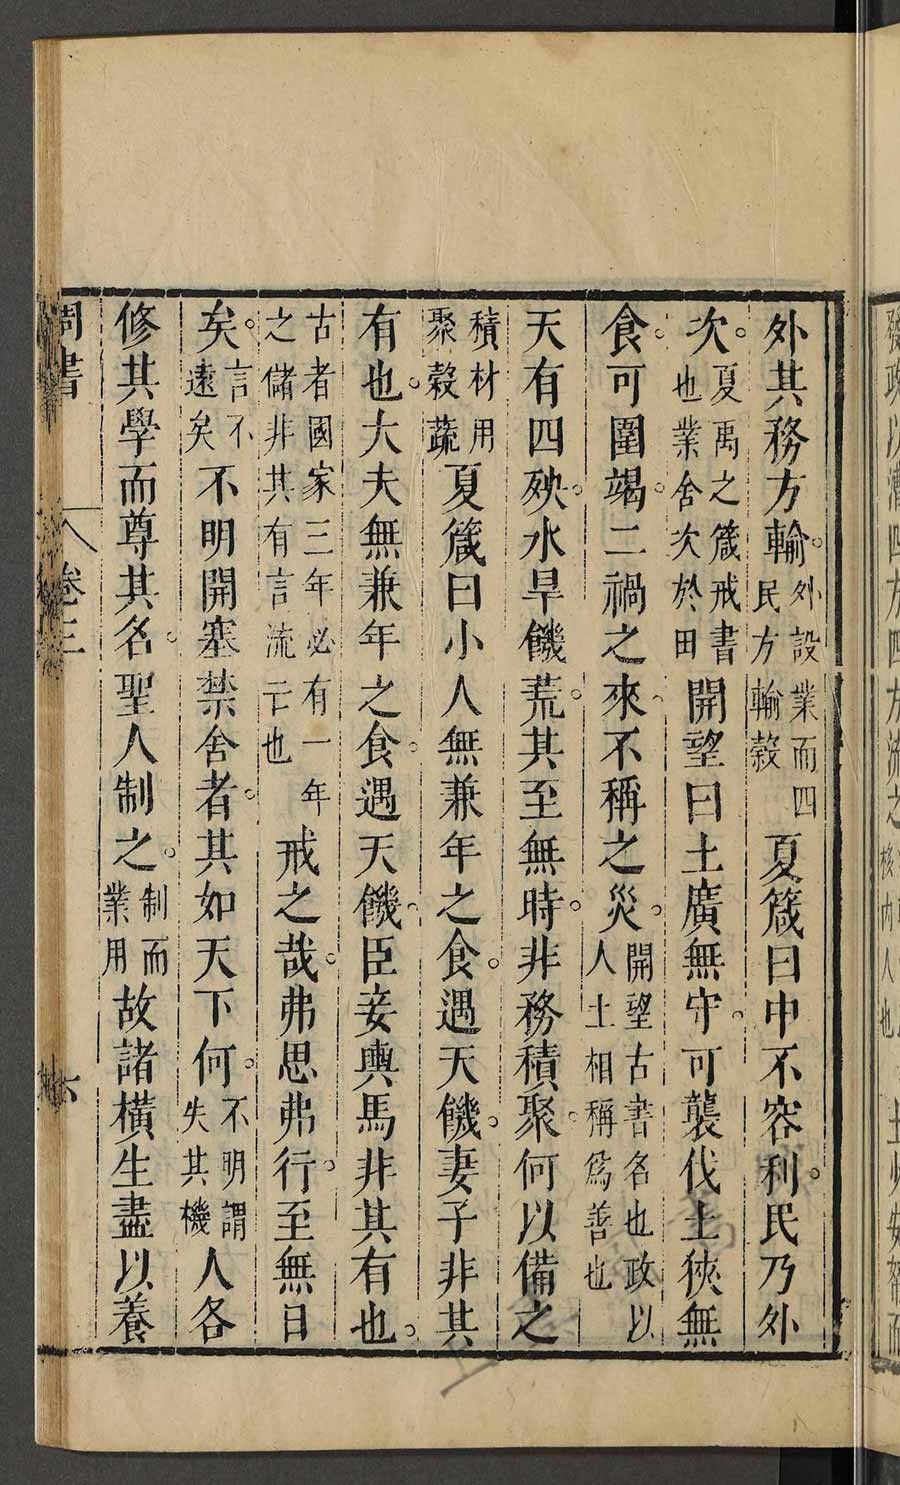 外其務方輸。外設業而四民方輸穀夏箴曰中不容利。民乃外
次。夏禹之箴戒書也業舍次於田開望曰土廣無守。可襲伐土狹無
食。可圍竭。二禍之來。不稱之災。開望古書名也政以人土相稱爲善也
天有四殃。水旱饑荒。其至無時。非務積聚。何以備之
積材用聚穀蔬夏箴曰小人無兼年之食。遇天饑。妻子非其
有也。大夫無兼年之食。遇天饑。臣妾輿馬非其有也。
古者國家三年必有一年之儲非其有言流亡也戒之哉。弗思弗行。至無日
矣。言不遠矣不明開塞禁舍者。其如天下何。不明謂失其機人各
修其學而尊其名。聖人制之。制而業用故諸橫生盡以養
周書 卷三 六